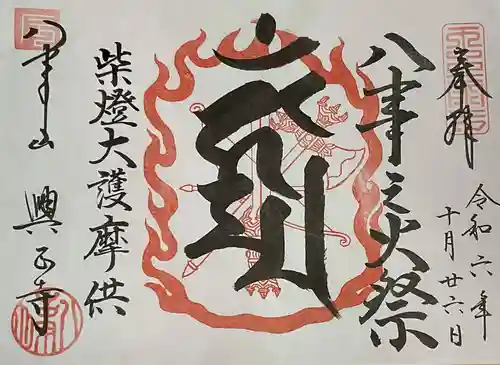 奉拝
令和六年
十月廿六日
八事之火祭
柴燈大護摩供
八事山
興正寺